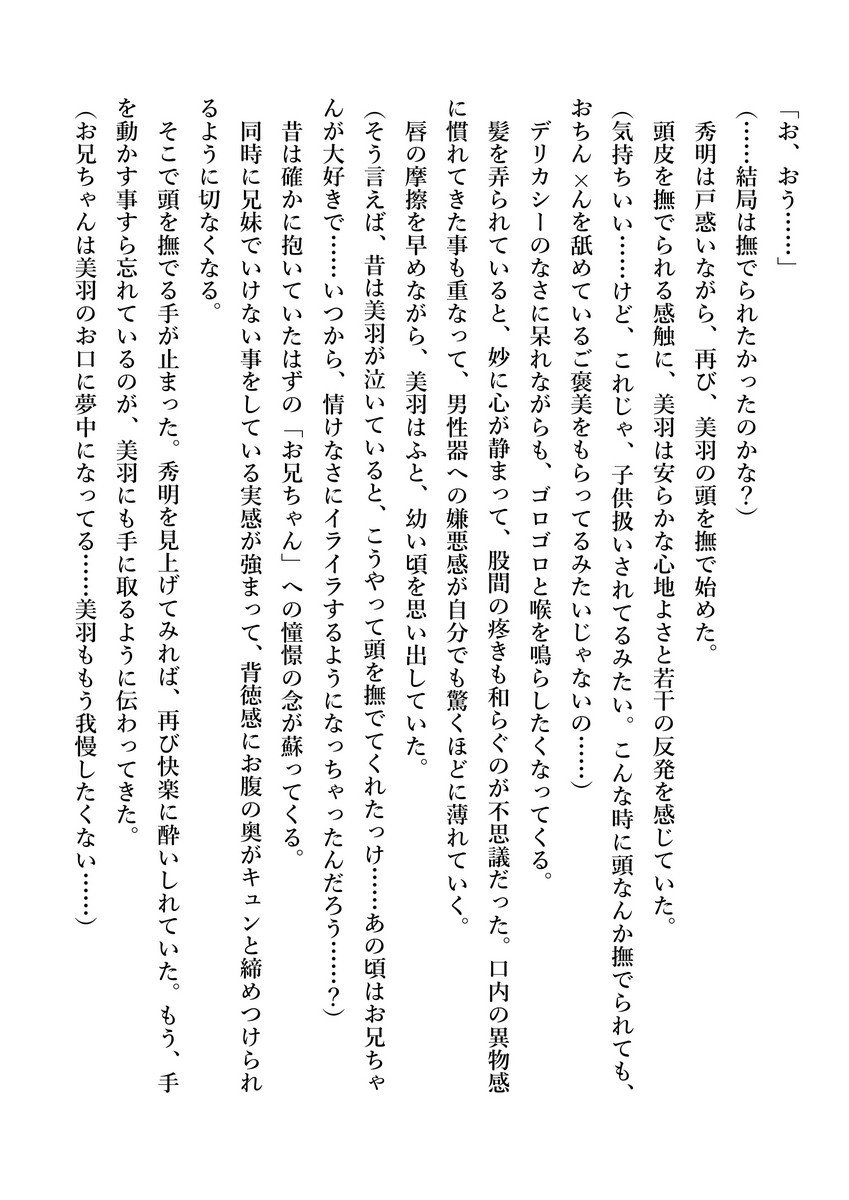 「お、おう……」
（……結局は撫でられたかったのかな？）
秀明は戸惑いながら、再び、美羽の頭を撫で始めた。
頭皮を撫でられる感触に、美羽は安らかな心地よさと若干の反発を感じていた。
（気持ちいい……けど、これじゃ、子供扱いされてるみたい。こんな時に頭なんか撫でられても、
おちん×んを舐めているご褒美をもらってるみたいじゃないの……）
デリカシーのなさに呆れながらも、ゴロゴロと喉を鳴らしたくなってくる。
髪を弄られていると、妙に心が静まって、股間の疼きも和らぐのが不思議だった。口内の異物感
に慣れてきた事も重なって、男性器への嫌悪感が自分でも驚くほどに薄れていく。
唇の摩擦を早めながら、美羽はふと、幼い頃を思い出していた。
（そう言えば、昔は美羽が泣いていると、こうやって頭を撫でてくれたっけ……あの頃はお兄ちゃ
んが大好きで……いつから、情けなさにイライラするようになっちゃったんだろう……？）
昔は確かに抱いていたはずの「お兄ちゃん」への憧憬の念が蘇ってくる。
同時に兄妹でいけない事をしている実感が強まって、背徳感にお腹の奥がキュンと締めつけられ
るように切なくなる。
そこで頭を撫でる手が止まった。秀明を見上げてみれば、再び快楽に酔いしれていた。もう、手
を動かす事すら忘れているのが、美羽にも手に取るように伝わってきた。
（お兄ちゃんは美羽のお口に夢中になってる……美羽ももう我慢したくない……）